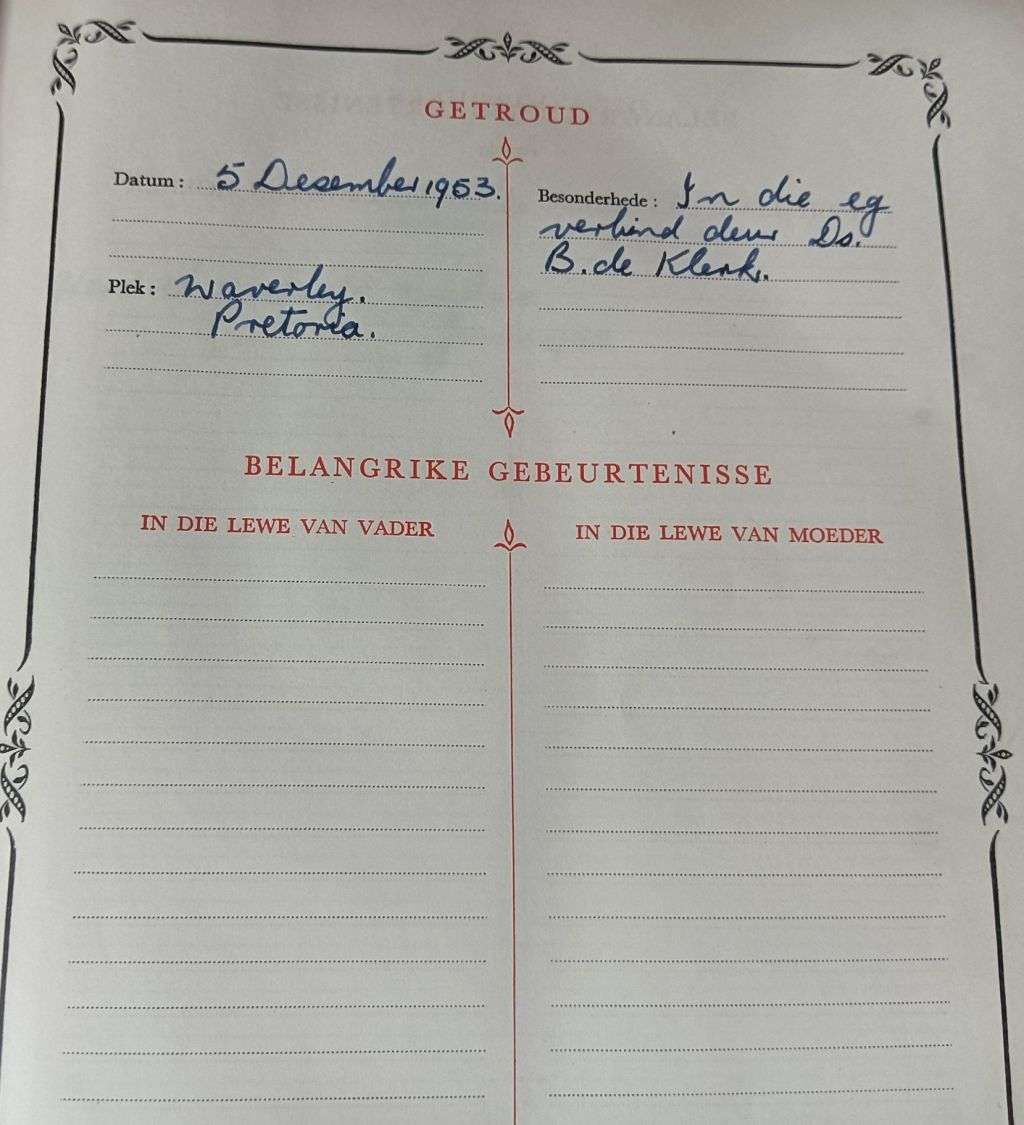 GETROUD
Datum : 5 Desember 1953.
Plek : Waverley.
Pretoria.
Besonderhede : In die eg
verbind deur Ds.
B. de Klerk.
BELANGRIKE GEBEURTENISSE
IN DIE LEWE VAN VADER
IN DIE LEWE VAN MOEDER